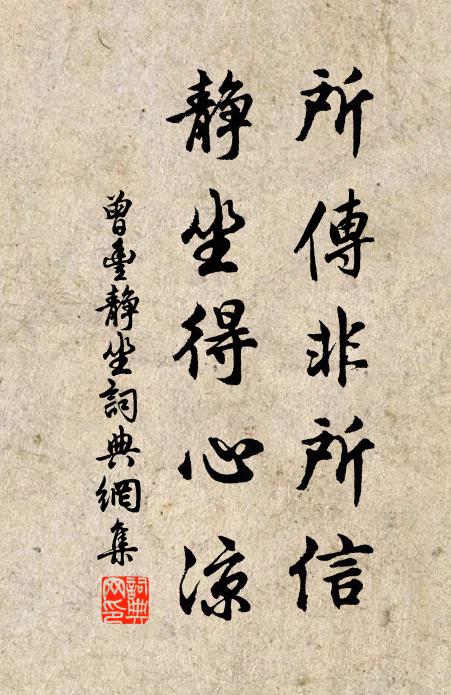 所傳非所信
靜坐得心涼
曾豐靜坐詞典網集
詞典網印